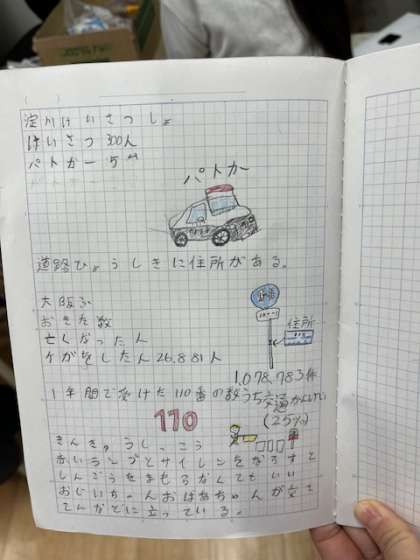 淀川けいさつしょ
けいさつ 300人
パトカー 5台
パトカー
道路ひょうしきに住所がある。
大阪ふ
おきた数
亡くなった人
ケがをした人 26.881人
住所
1,078,783件
1年間で受けた110番の数うち交通かんけい
(25%)
110
きんきゅうじ、こう
赤いランプとサイレンをならすと
しんごうをまもらなくてもいい
おじいちゃんおばあちゃんが
てんなどに立っている。